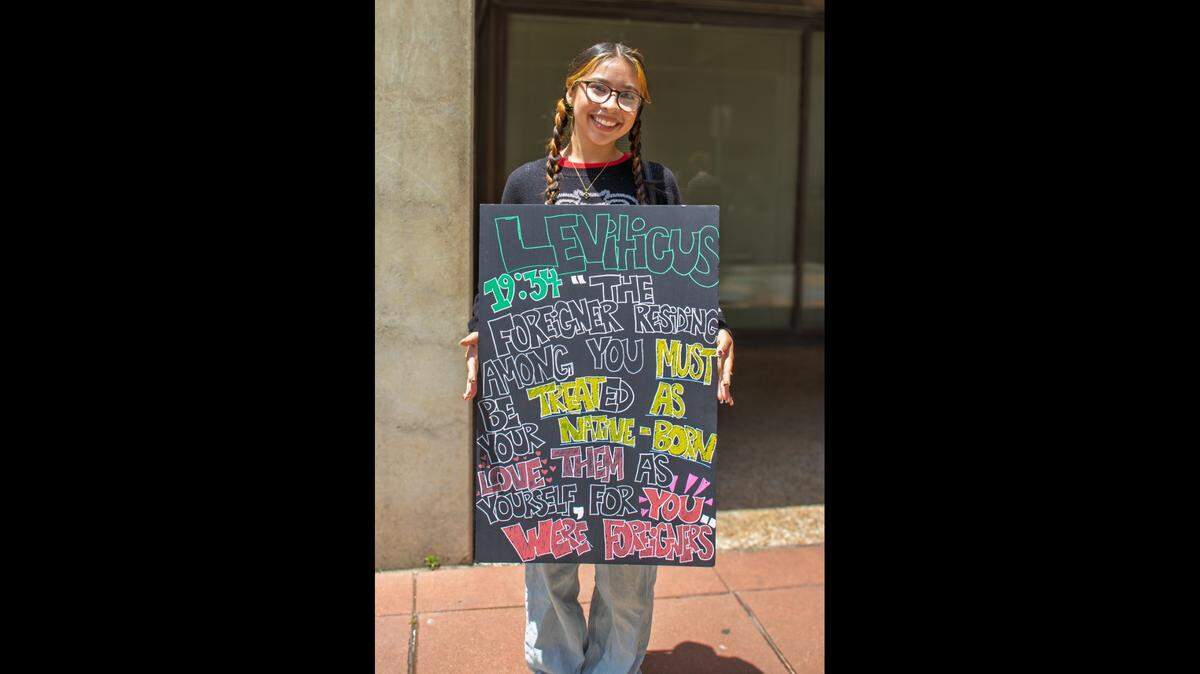 LEViticus
19:34 "THE
FOREIGNER RESIDING
AMONG, YOU MUST
BE TREATED AS
YOUR NATIVE-BORN
LOVE THEM AS
YOURSELF, FOR YOU
WERE FOREIGNERS"